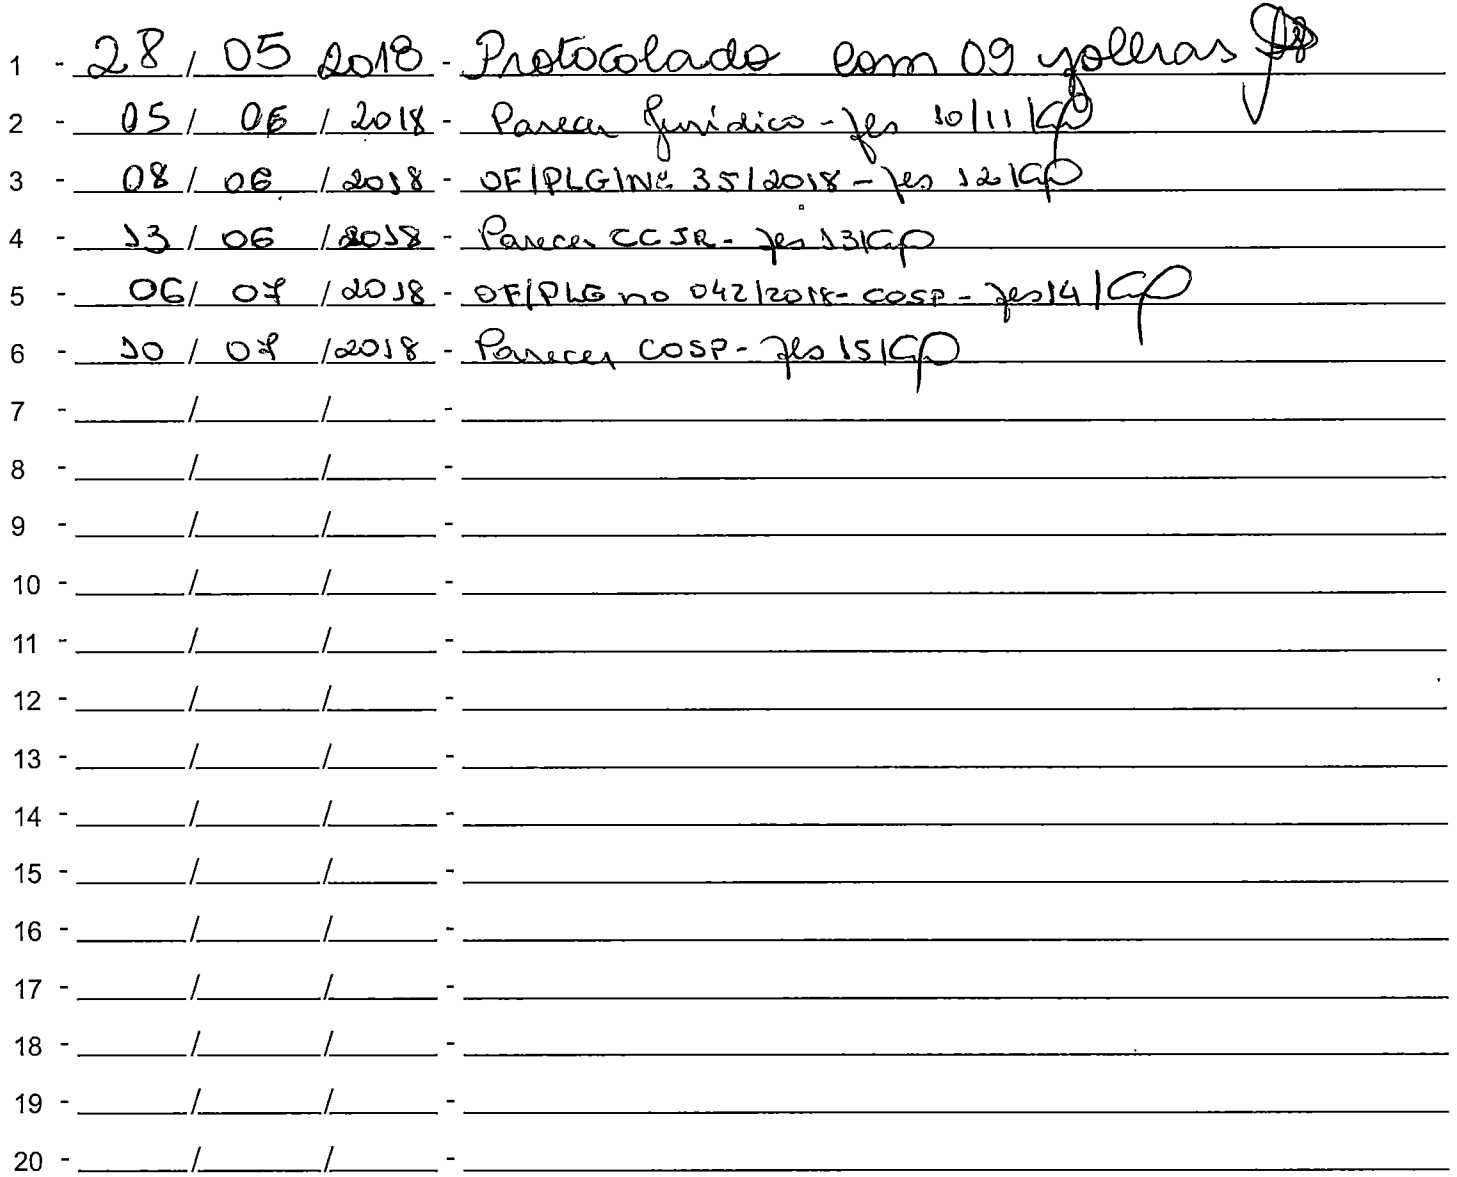 1 - 28 / 05 2018 - Protocolado com 09 folhas
2 - 05 / 06 / 2018 - Parecer Jurídico - fls 10/11/
3 - 08 / 06 / 2018 - OF/PLG/Nº 35/2018 - fls 12/
4 - 13 / 06 / 2018 - Parecer CCJR - fls 13/
5 - 06 / 07 / 2018 - OF/PLG no 042/2018 - COSP - fls 14/
6 - 10 / 07 / 2018 - Parecer COSP - fls 15/
7 - / / -
8 - / / -
9 - / / -
10 - / / -
11 - / / -
12 - / / -
13 - / / -
14 - / / -
15 - / / -
16 - / / -
17 - / / -
18 - / / -
19 - / / -
20 - / / -